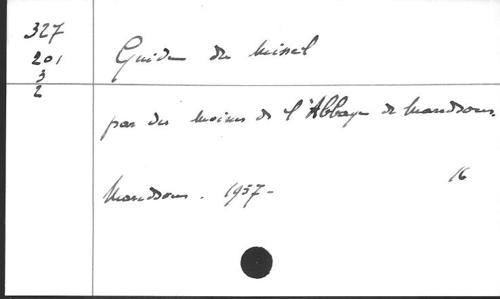 327
201
3
2
Guide du Missel
par des moines de l'Abbaye de Maredsous.
Maredsous. 1957-
16